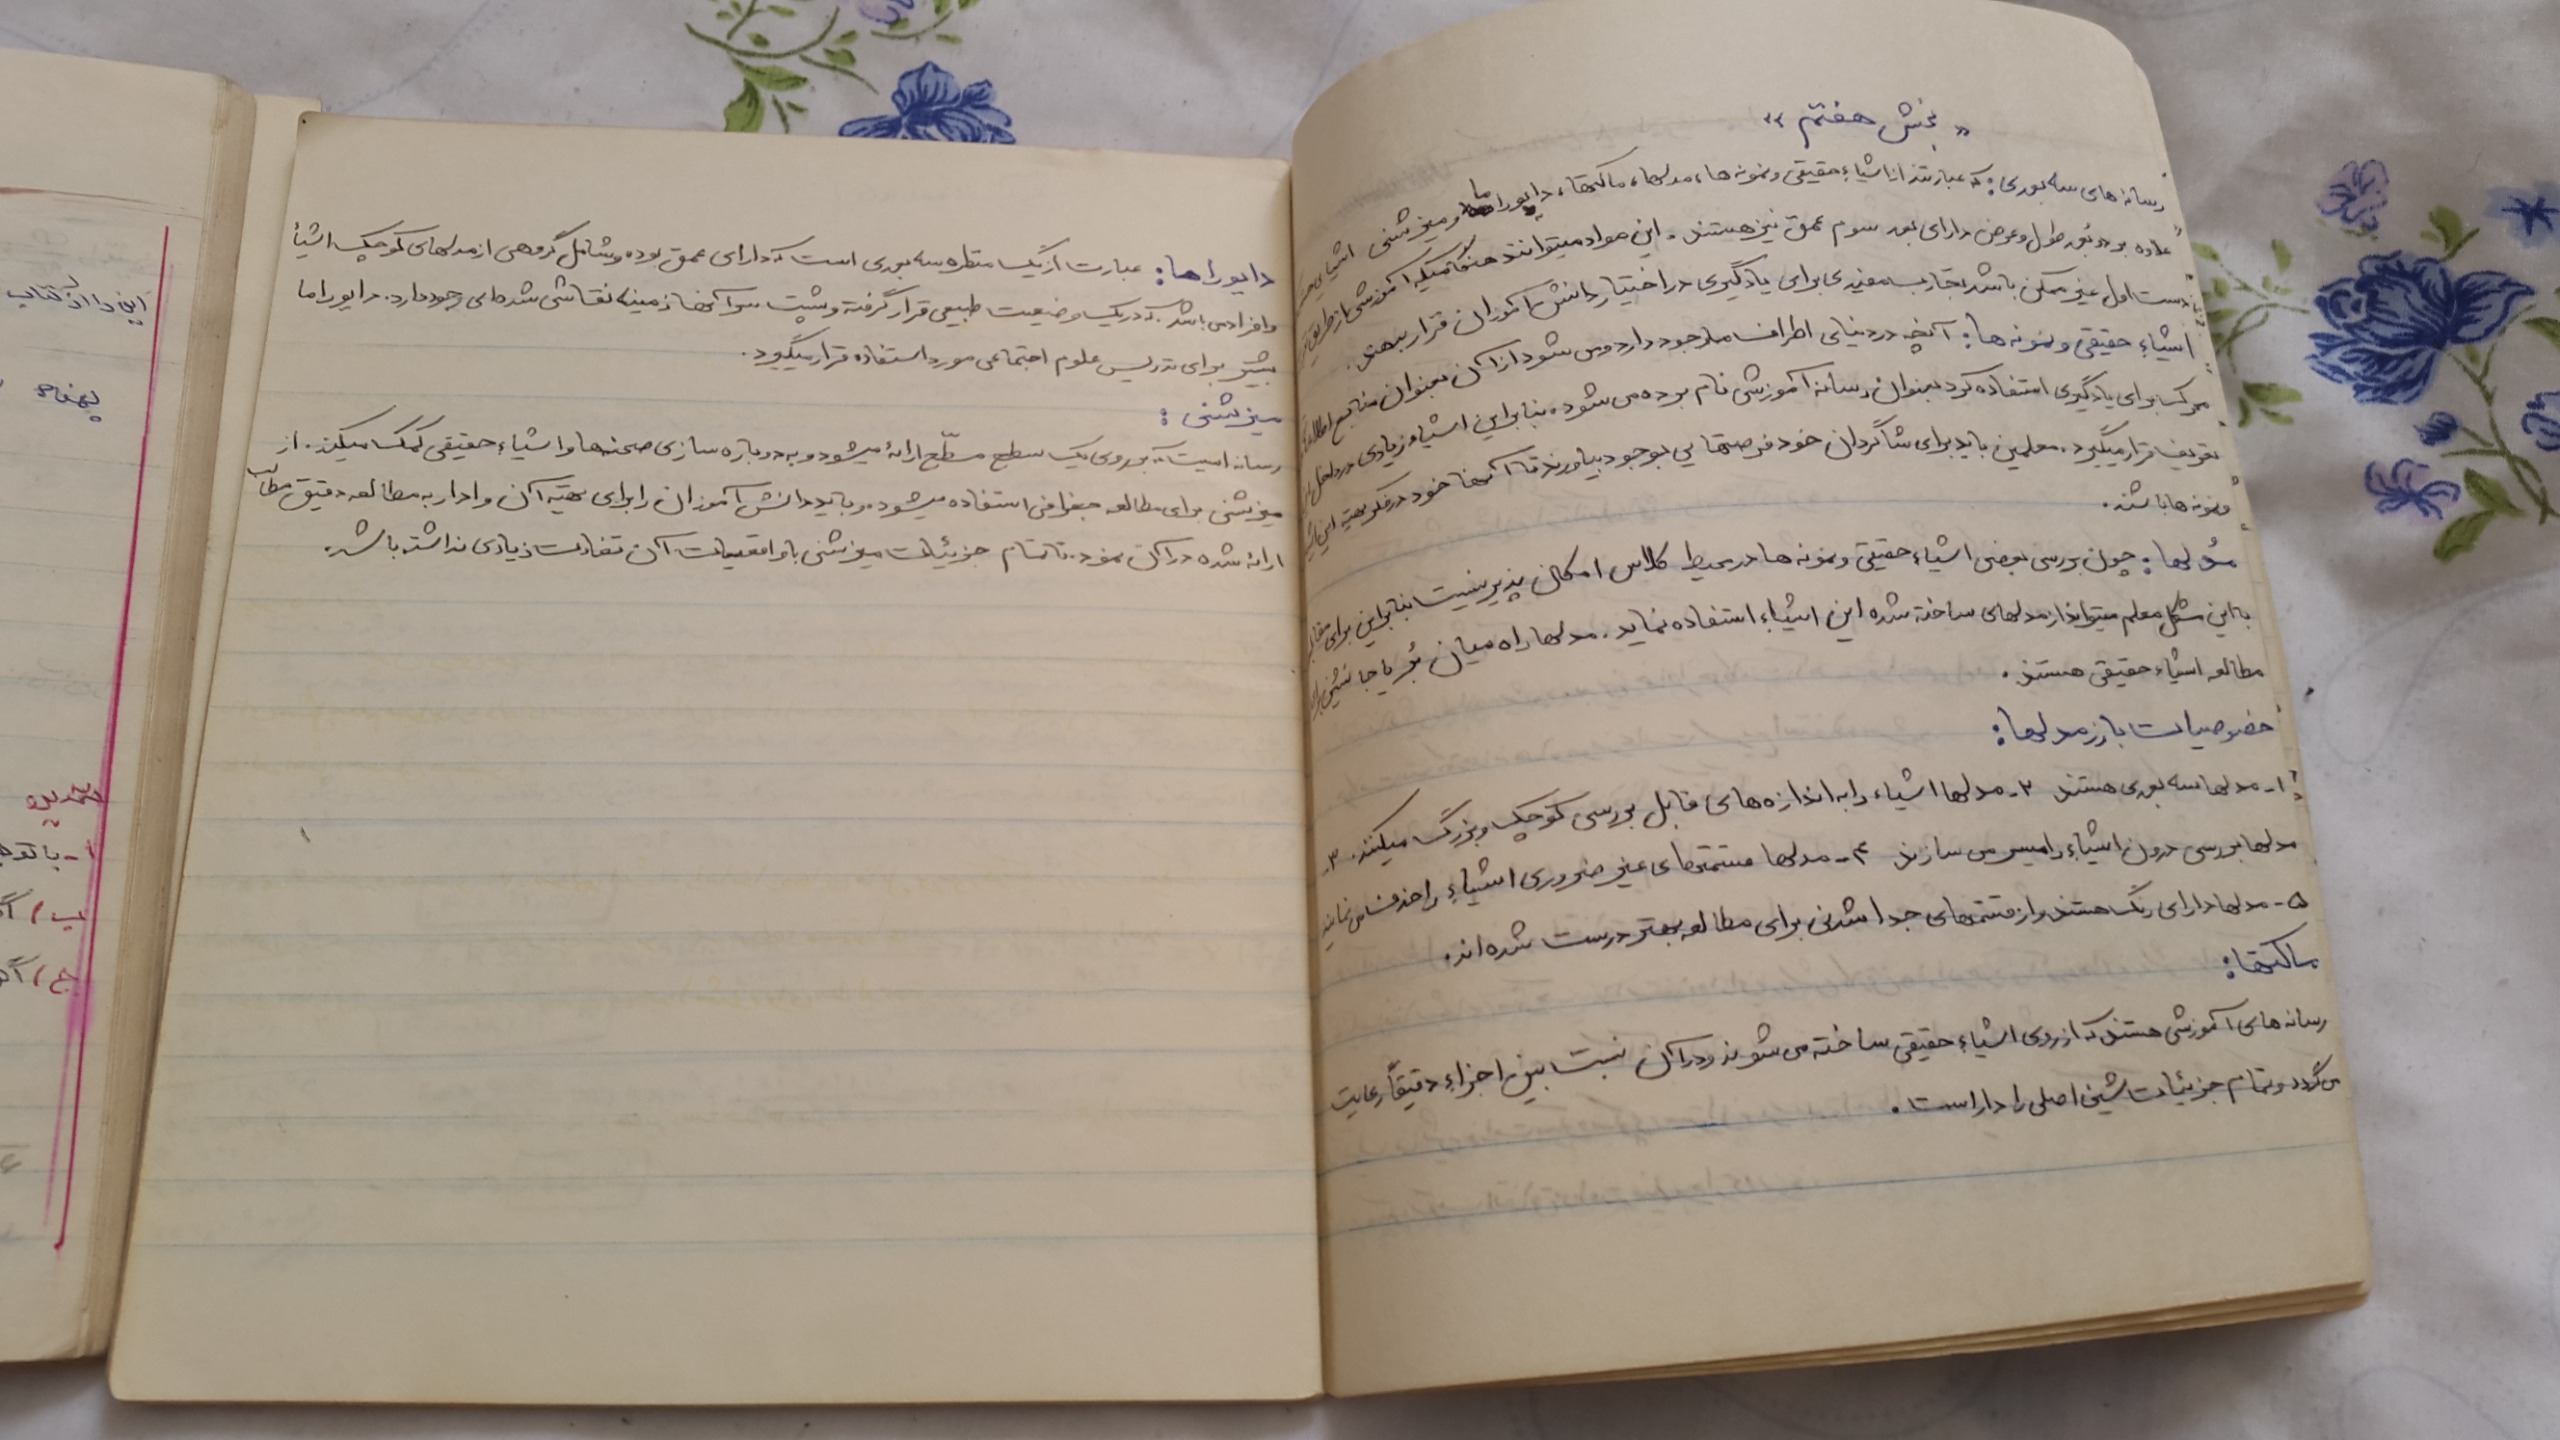 « بخش هفتم »
رسانه های سه بعدی: که عبارتند از اشیاء حقیقی و نمونه ها، مدلها، ماکتها، دایوراما و میزشنی اشیایی
علاوه بر دو بُعد طول و عرض دارای بعد سوم عمق نیز هستند. این مواد میتوانند هنگامیکه آموزشی از طریق
دست اول غیر ممکن باشد تجارب مفیدی برای یادگیری در اختیار دانش آموزان قرار بدهند.
اشیاء حقیقی و نمونه ها: آنچه در دنیای اطراف ما وجود دارد و می شود از آن بعنوان منابع اطلاعاتی
محرک برای یادگیری استفاده کرد بعنوان رسانه آموزشی نام برده می شود. بنابراین اشیاء زیادی در داخل
تعریف قرار میگیرد. معلمین باید برای شاگردان خود فرصتهایی بوجود بیاورند تا آنها خود در فکر تهیه این
و نمونه ها باشند.
مُدلها: چون بررسی بعضی اشیاء حقیقی و نمونه ها در محیط کلاس امکان پذیر نیست بنابراین برای مقابله
با این مشکل معلم میتواند از مدلهای ساخته شده این اشیاء استفاده نماید. مدلها راه میان بُر یا جانشین برای
مطالعه اشیاء حقیقی هستند.
خصوصیات بارز مدلها:
۱- مدلها سه بعدی هستند ۲- مدلها اشیاء را به اندازه های قابل بررسی کوچک و بزرگ میکنند. ۳-
مدلها بررسی درون اشیاء را میسر می سازند ۴- مدلها قسمتهای غیر ضروری اشیاء را حذف می نمایند
۵- مدلها دارای رنگ هستند و از قسمتهای جدا شدنی برای مطالعه بهتر درست شده اند.
ماکتها:
رسانه های آموزشی هستند که از روی اشیاء حقیقی ساخته می شوند و در آن نسبت بین اجزاء دقیقاً رعایت
می گردد و تمام جزئیات شیئ اصلی را داراست.
دایوراها: عبارت از یک منظره سه بعدی است که دارای عمق بوده و شامل گروهی از مدلهای کوچک اشیأ
و افراد می باشد. که در یک وضعیت طبیعی قرار گرفته و پشت سر آنها زمینه نقاشی شده ای وجود دارد. دایوراما
بیشتر برای تدریس علوم اجتماعی مورد استفاده قرار میگیرد.
میزشنی:
رسانه ایست که بر روی یک سطح مسطّح ارائه میشود و به دوباره سازی صحنه ها و اشیاء حقیقی کمک میکند. از
میزشنی برای مطالعه جغرافی استفاده میشود. و باید دانش آموزان را برای تهیه آن وادار به مطالعه دقیق مطالب
ارائه شده در آن نمود. تا تمام جزئیات میزشنی با واقعیات آن تفاوت زیادی نداشته باشد.